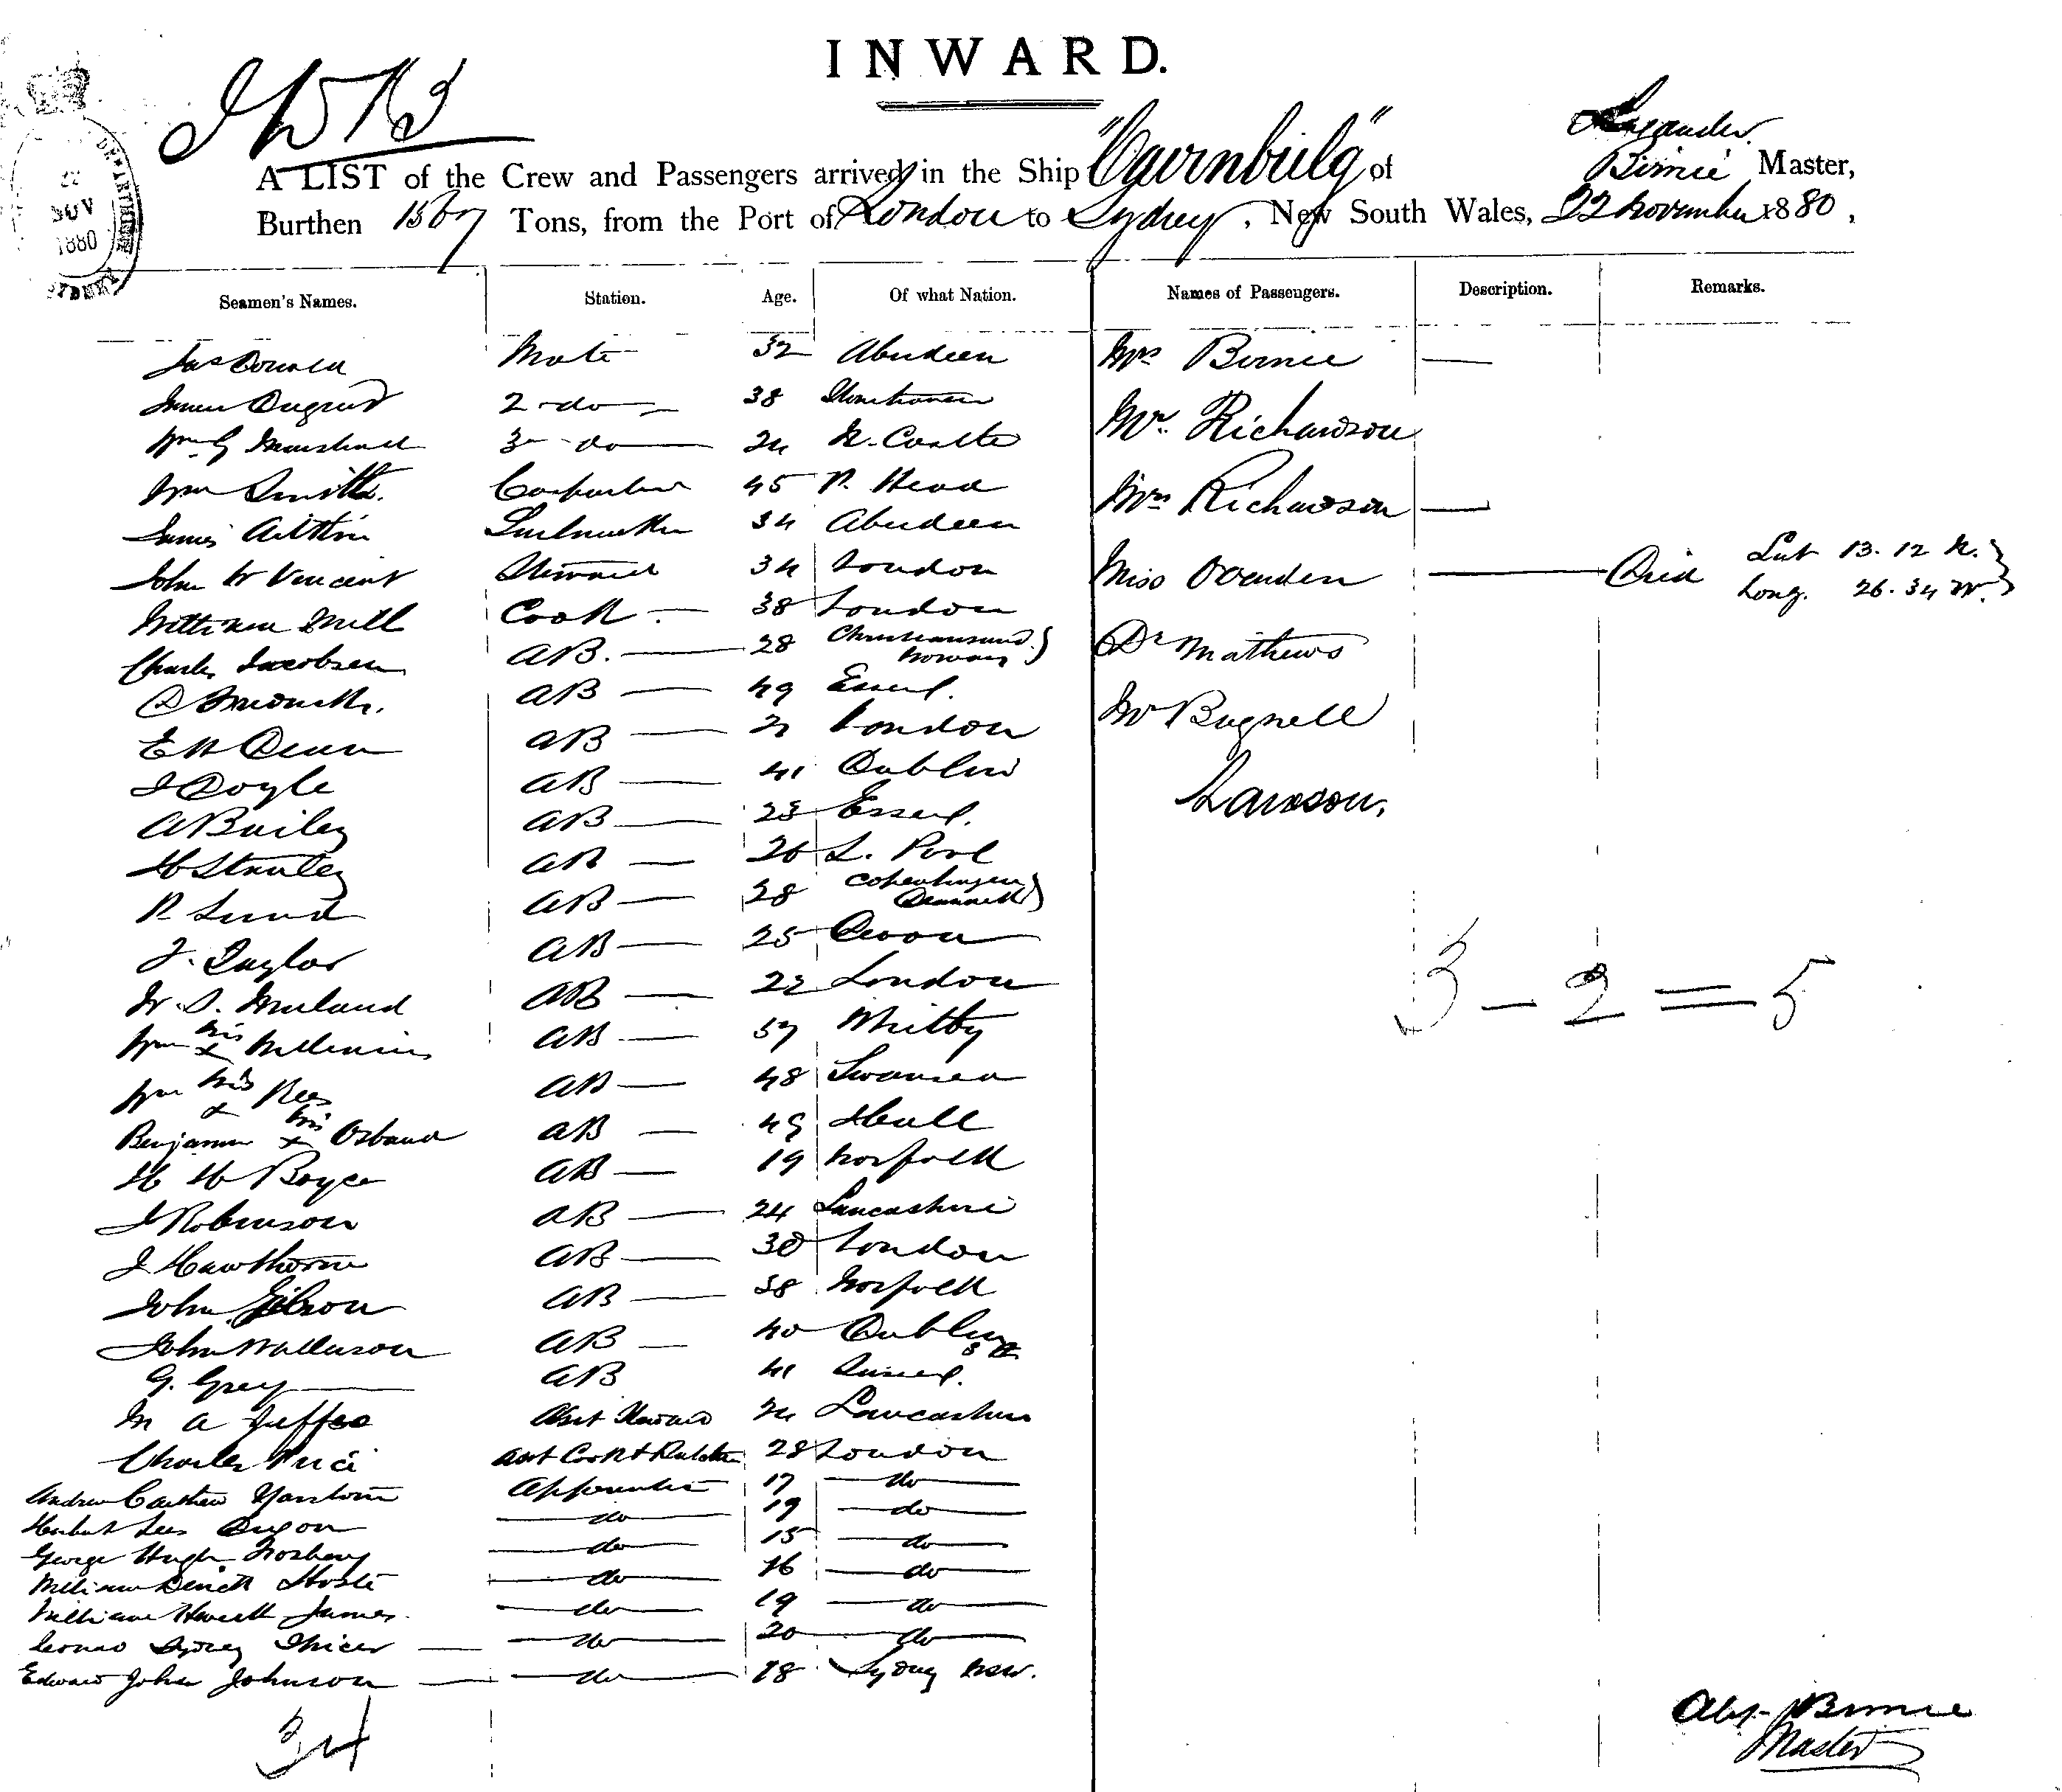 INWARD.
22
NOV
1880
SYDNEY
Alexander
A LIST of the Crew and Passengers arrived in the Ship "Cairnbulg" of Birnie Master,
Burthen 1567 Tons, from the Port of London to Sydney, New South Wales, 22 November 1880,
Seamen's Names. Station. Age. Of what Nation. Names of Passengers. Description. Remarks.
Jas Donald Mate 32 Aberdeen Mrs Birnie —
James 2 do 38 Stonehaven Mr. Richardson
Wm G Marshall 3 do 24 N. Castle
Wm Smith. Carpenter 45 P. Head Mrs Richardson —
James Aitken Sailmaker 34 Aberdeen
John W Vincent Steward 34 London Miss Ovenden — Died Lat 13. 12 N.
Long. 26. 34 W.
William Mill Cook. 38 London
Charles Jacobsen AB. 28 Christiansund Norway Dr Mathews
AB 49 Essex.
E H Dean AB 21 London Mr Bugnell
J Doyle AB 41 Dublin
A Bailey AB 23 Essex. Lawson.
H Stanley AB 26 L. Pool
P. Lund AB 28 Copenhagen Denmark
J. Taylor AB 25 Devon
W. S. AB 22 London 3 — 2 = 5
Wm his x AB 57 Whitby
Wm his x Rees AB 48 Swansea
Benjamin his x Osband AB 49 Hull
H W Boyce AB 19 Norfolk
J Robinson AB 24 Lancashire
J Hawthorne AB 30 London
John Gibson AB 38 Norfolk
John Wilkinson AB 40 Dublin
G. Grey AB 41 Sussex.
M A Asst Steward 24 Lancashire
Charles Price Asst Cook & 28 London
Andrew Carthew Apprentice 17 do
Herbert Lees Dugon do 19 do
George Hugh do 15 do
William do 16 do
William Howell James. do 19 do
Leonard Sydney Spicer do 20 do
Edward John Johnson do 18 Sydney NSW.
34
Alex Birnie
Master